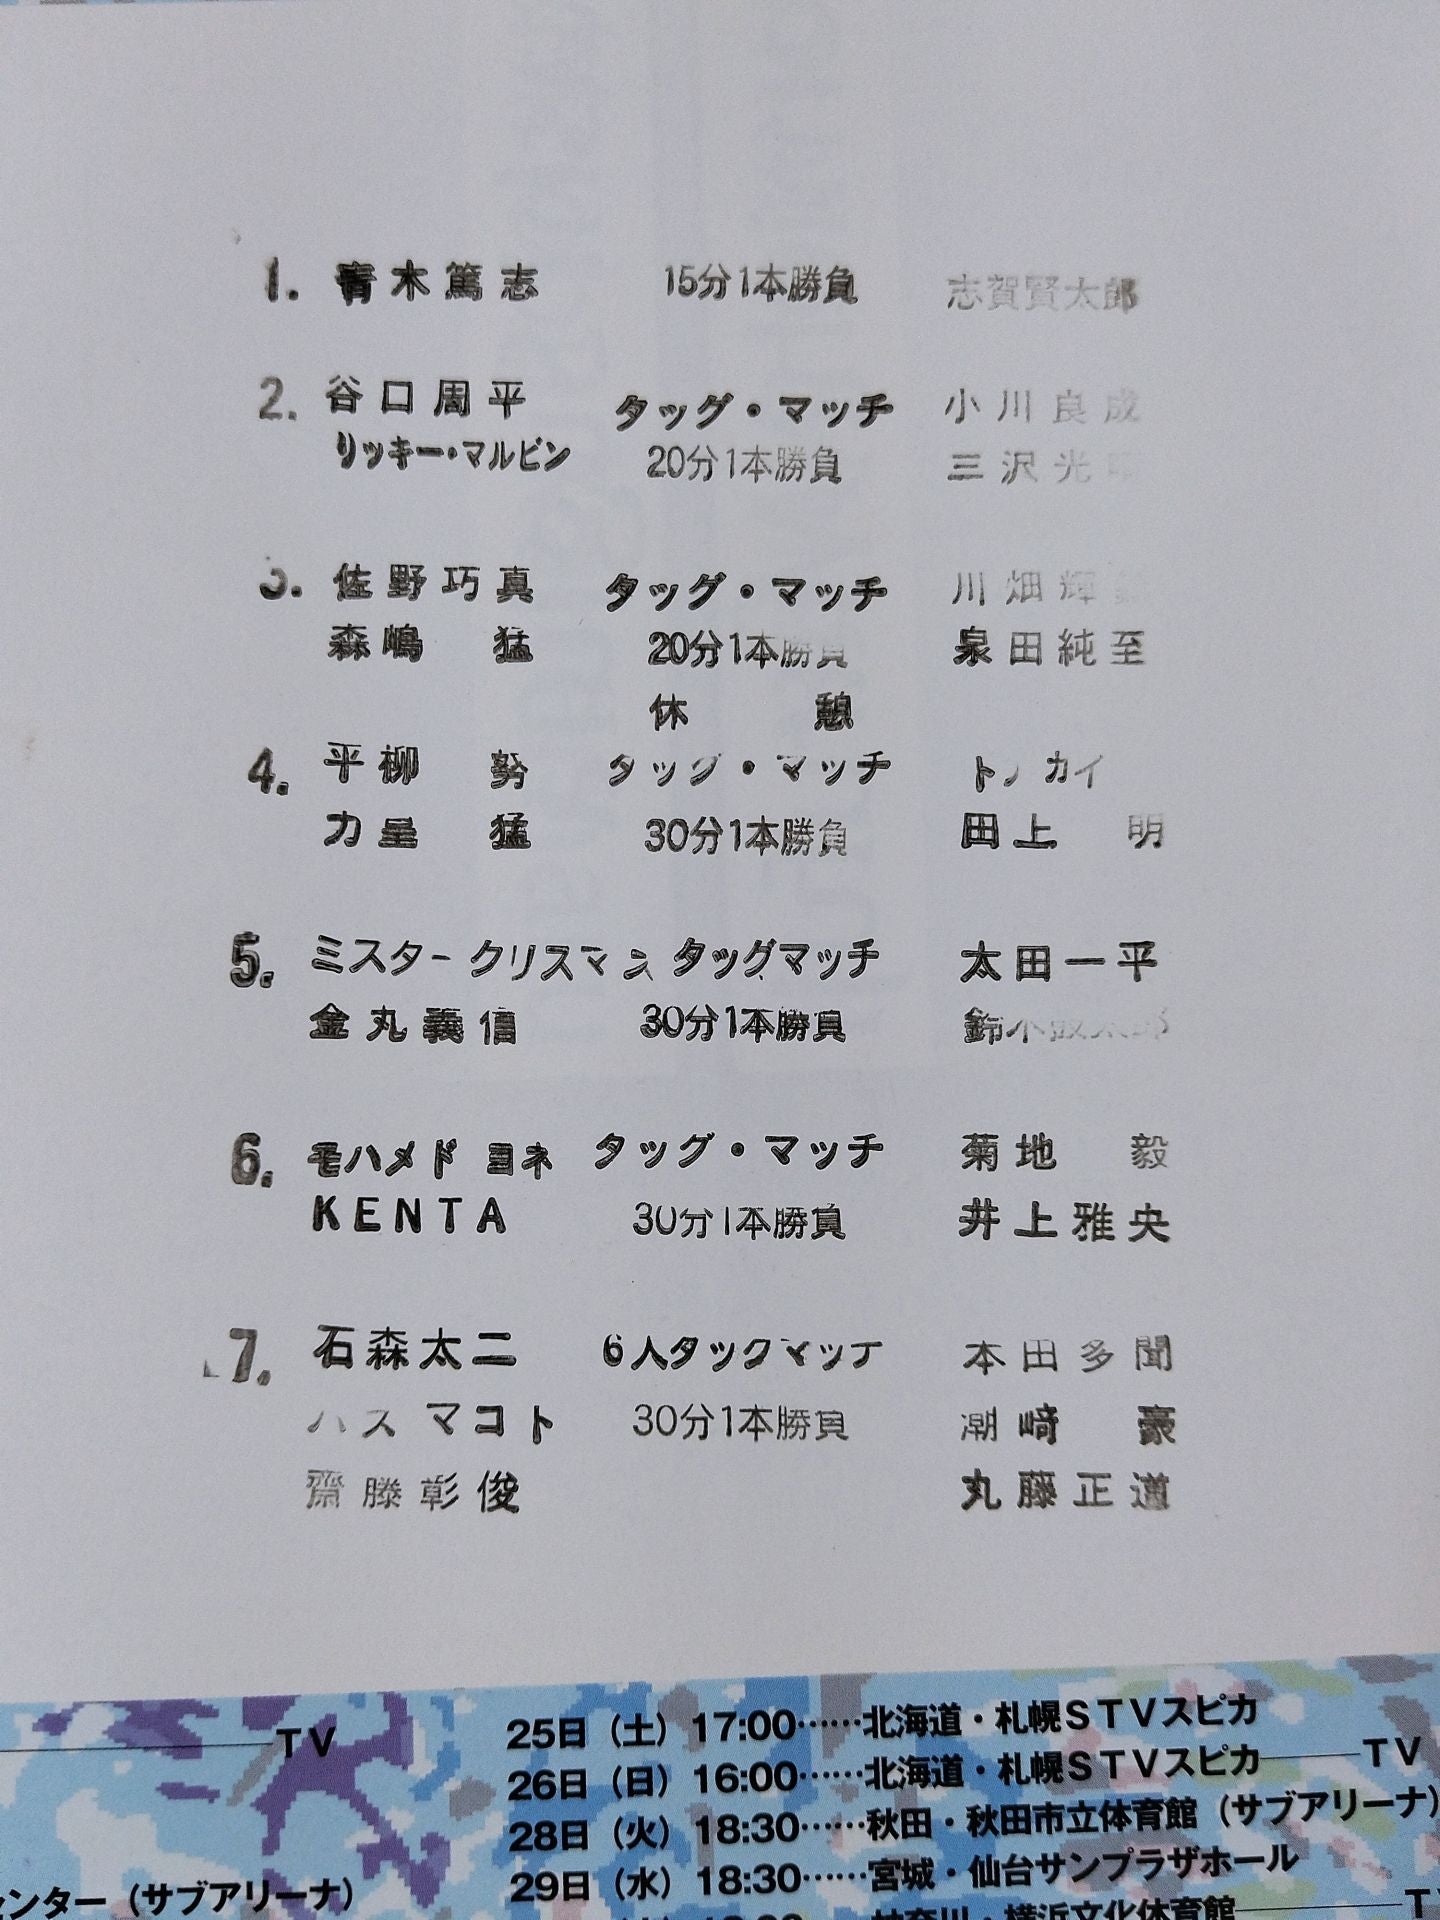 1. 青木篤志 15分1本勝負 志賀賢太郎
2. 谷口周平 タッグ・マッチ 小川良成
リッキー・マルビン 20分1本勝負 三沢光
3. 佐野巧真 タッグ・マッチ 川畑輝
森嶋 猛 20分1本勝負 泉田純至
休 憩
4. 平柳 努 タッグ・マッチ
力皇 猛 30分1本勝負 田上 明
5. ミスタークリスマン タッグマッチ 太田一平
金丸義信 30分1本勝負 鈴木鼓太郎
6. モハメド ヨネ タッグ・マッチ 菊地 毅
KENTA 30分1本勝負 井上雅央
7. 石森太二 6人タッグマッチ 本田多聞
マコト 30分1本勝負 潮﨑 豪
齋藤彰俊 丸藤正道
TV 25日（土）17:00……北海道・札幌STVスピカ
26日（日）16:00……北海道・札幌STVスピカ TV
28日（火）18:30……秋田・秋田市立体育館（サブアリーナ）
ンター（サブアリーナ） 29日（水）18:30……宮城・仙台サンプラザホール
神奈川・横浜文化体育館